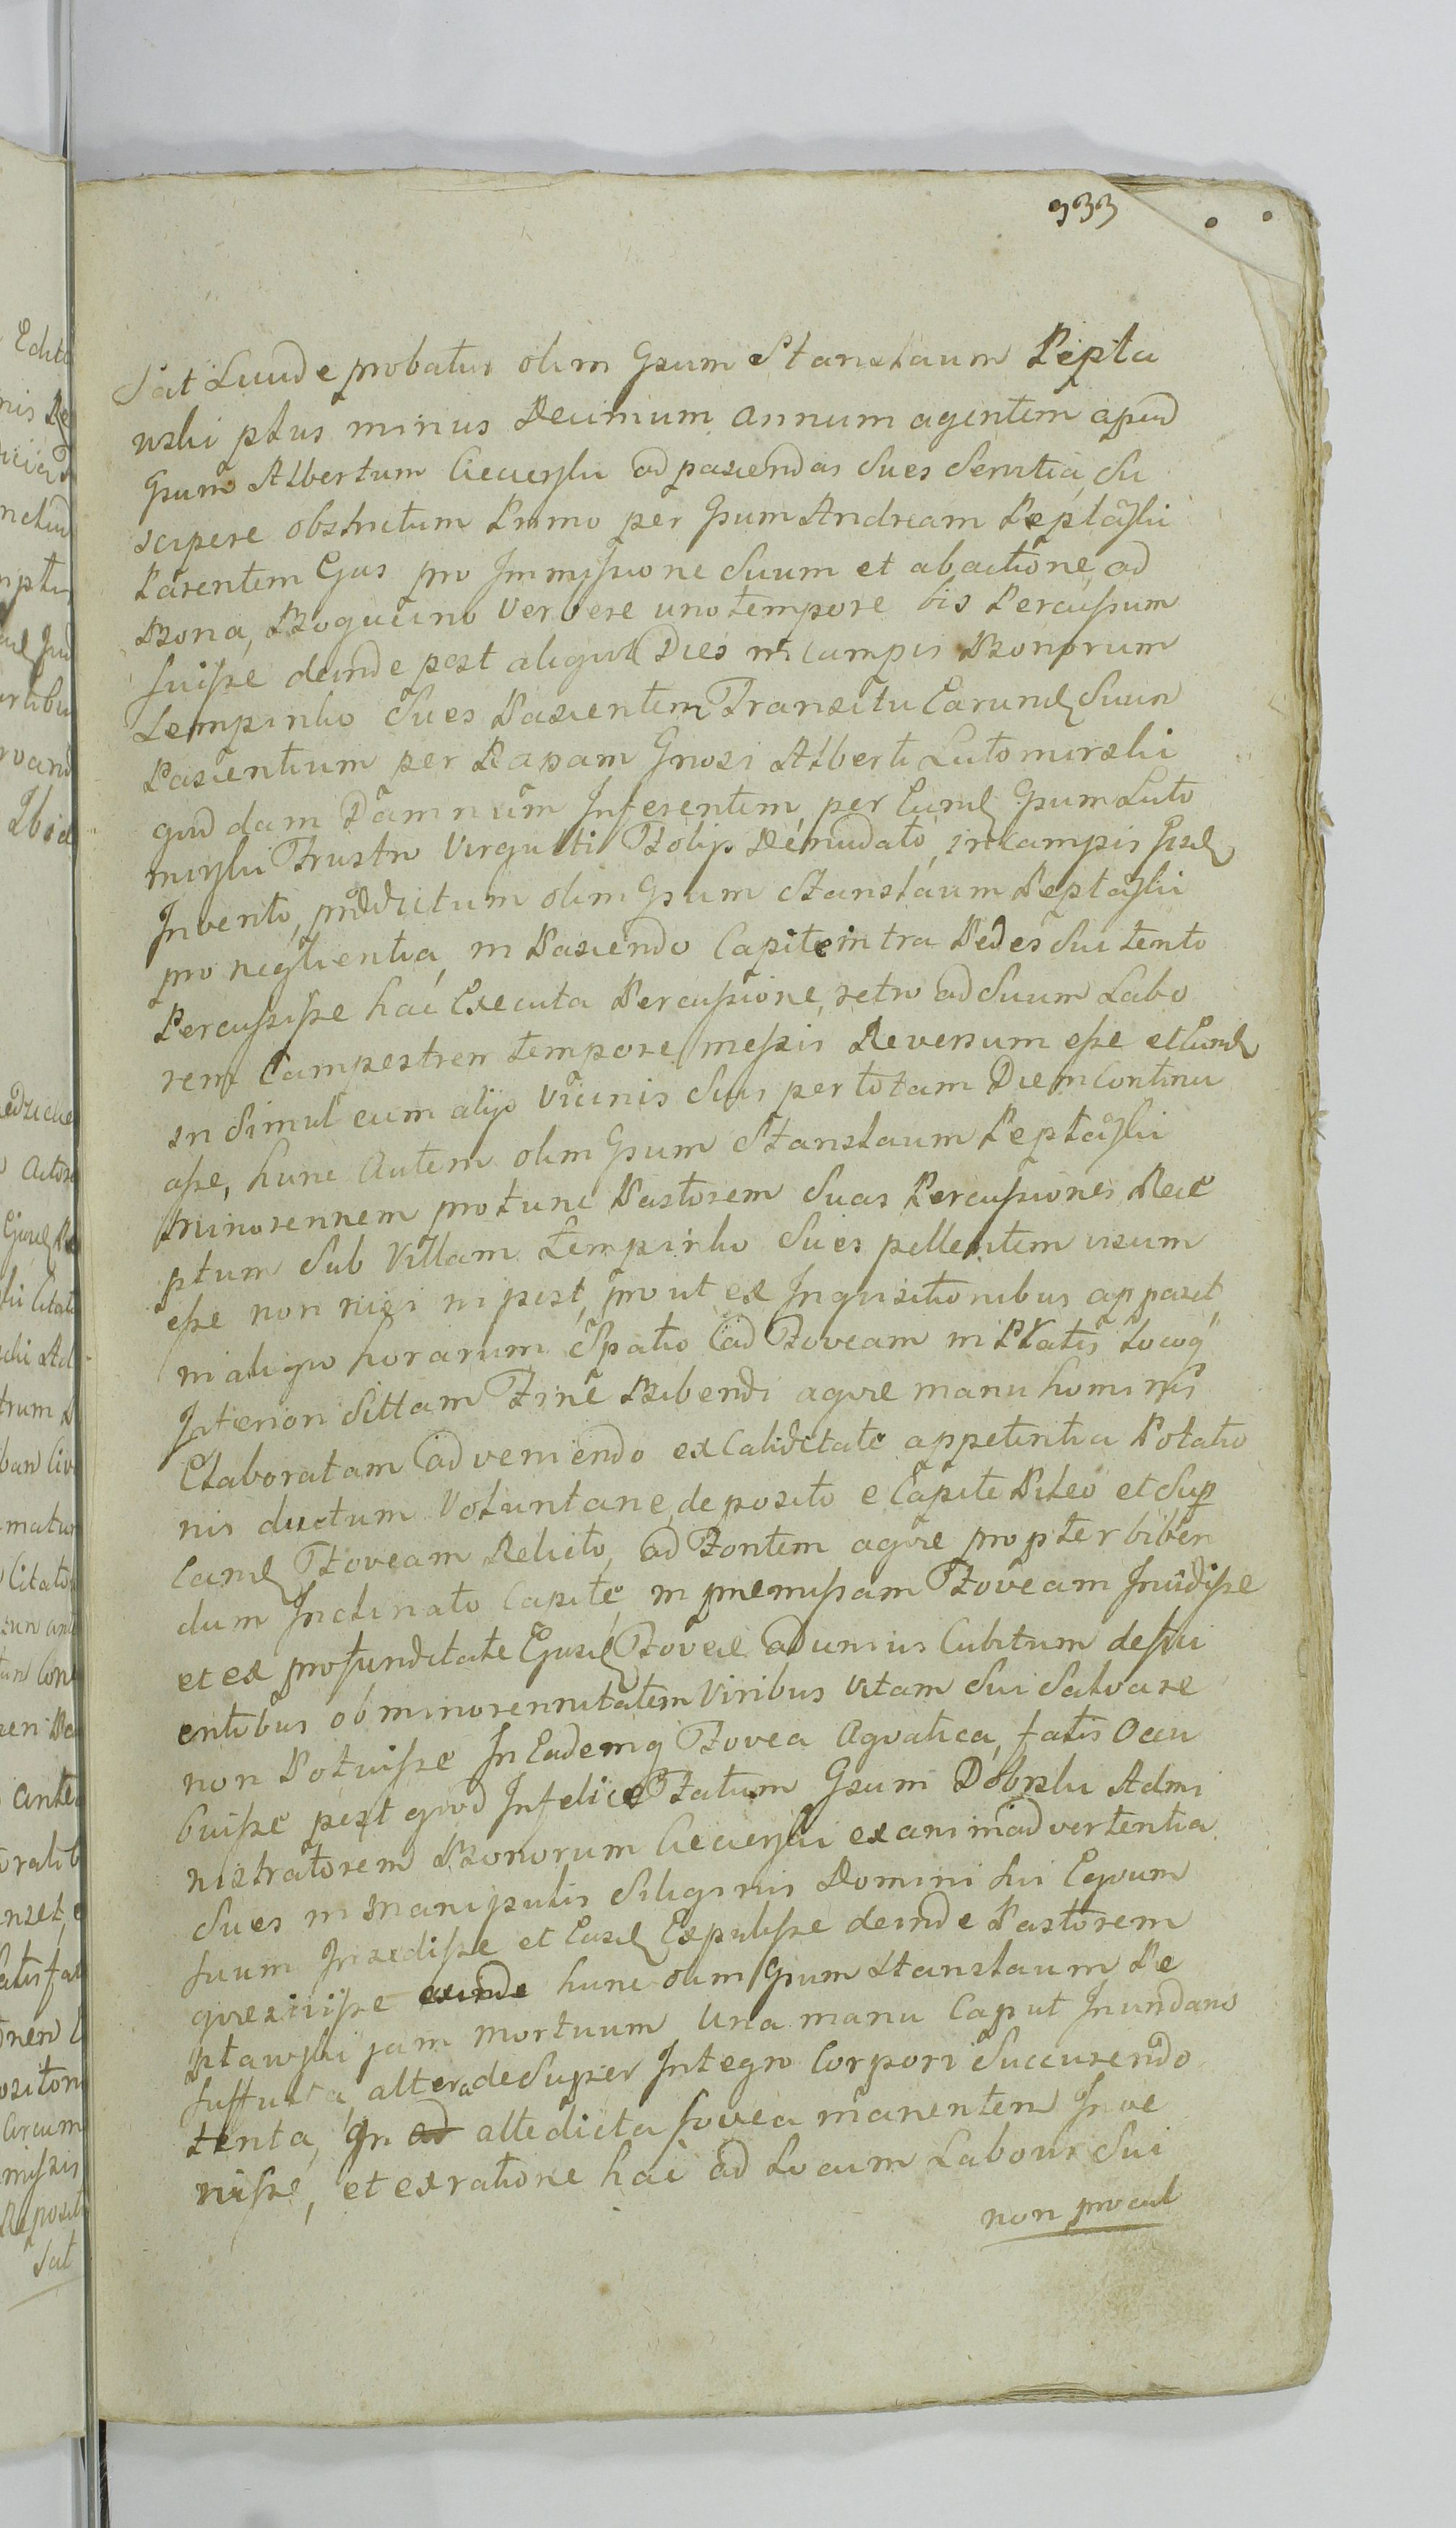 933
Sat Luude probatur olim Gsum Stanislaum Pepta
wski plus minus Decimum annum agentem apud
Gsum Albertum Ciecierski ad pascendas Sues Servitia, Su
scipere obstrictum Primo per Gsum Andream Peptaski
Parentem Ejus pro Immissione Suum et abactione, ad
Bona, Bogucino Verbere uno tempore bis Percussum
fuisse deinde post aliquot Dies in campis Bonorum
Lempinko Sues Pascentem Transitu Earund Suum
Pascentium per Rapam Gnosi Alberti Lutomirski
quod dam Damnum Inferentem, per Eund Gsum Luto
mirski Frusto Virgulti Folijs Denudato, in Campis Gsd
Invento, prodictum olim Gsum Stanslaum Peptaski
pro neglientia, in Pascendo Capite intra Pedes Sui tento
Percussisse hac Executa Percussione, retro ad Suum Labo
rem Campestrem tempore messis Reversum esse et Eund
in Simul cum alijs Vicinis Suis per totam Diem Continu
asse, hunc Autem olim Gsum Stanslaum Peptaski
minorennem protunc Pastorem Suas Percussiones Rece
ptum Sub Villam Lempinko Sues pellentem visum
esse non nisi in post, prout ex Inquisitionibus apparet,
in aliquo horarum Spatio ad Foveam in Pratis Locoq
Interiori Sittam Fine Bibendi aqvae manu hominis
Elaboratam adveniendo ex Caliditate appetentia Potatio
nis ductum Voluntarie, deposito e Capite Pileo et Sup
Eand Foveam Relicto, ad Fontem aqvae propter biben
dum Inclinato Capite, in praemissam Foveam Incidisse
et ex profunditate Ejusd Foveae ad unius Cubitum defici
entibus ob minorennitatem Viribus Vitam Sui Salvare
non Potuisse In Eademq Fovea Aqvatica, fatis Occu
buisse post qvod Infelice Fatum Gsum Dobrski Admi
nistratorem Bonorum Ciecierski ex animadvertentia
Sues in Manipulis Siliginis Domini Sui Eqvum
suum Insedisse et Easd Expulisse deinde Pastorem
qvaesivisse hunc olim Gsum Stanslaum Pe
ptawski jam Mortuum Una manu Caput Inundans
Suffulta, altera deSuper Integro Corpori Succurendo
tenta, In ad altedicta fovea manentem Inve
nisse, et ex ratione hac ad Locum Laboris Sui
non procul